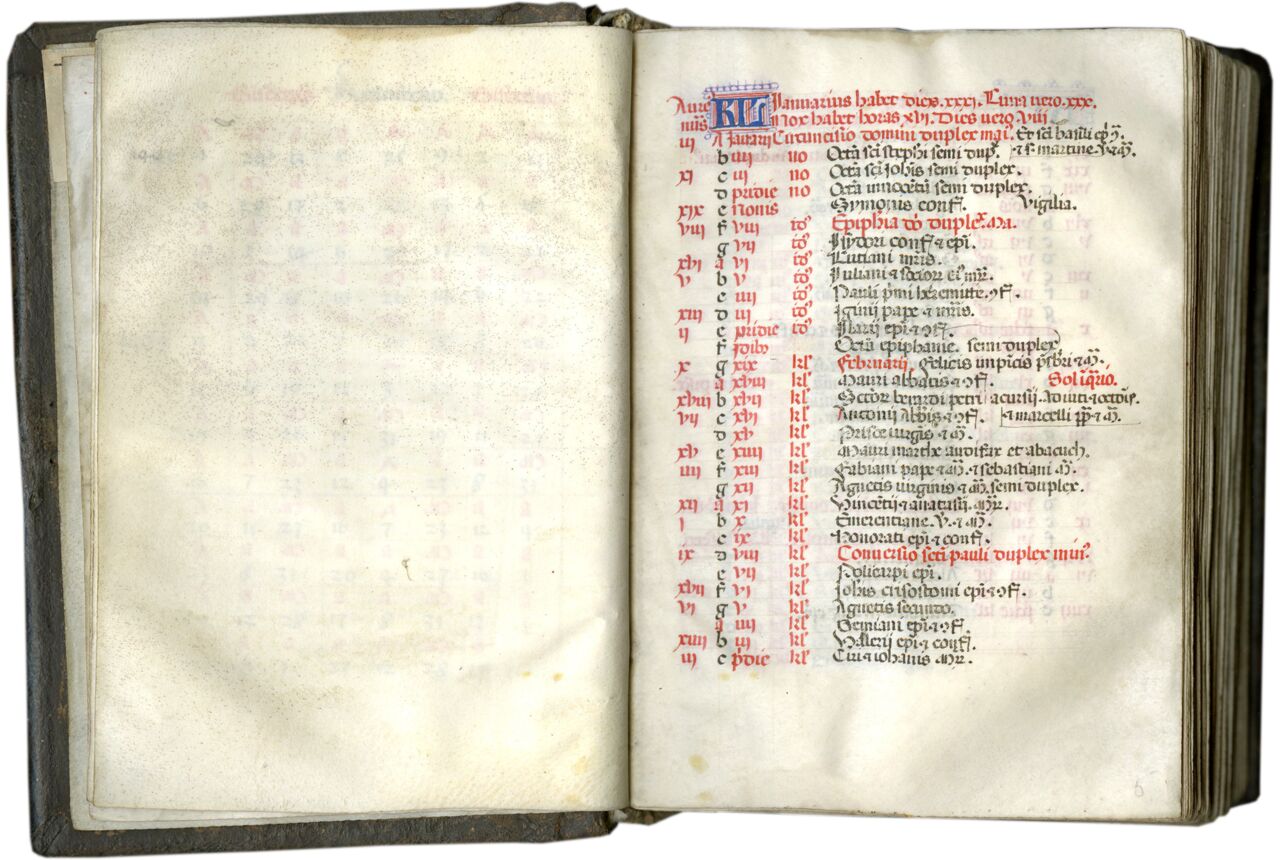 Aure KL Ianuarius habet dies. xxxi. Luna uero. xxx.
nu⁹s Nox habet horas xvi. Dies uero. viii.
iii A Ianuarii Circuncisio domini duplex mai. Et sci basilii epi
b iiii no Octa sci stephi semi dup. & s. martine. v. & m̄.
xi c iii no Octa sci Iohis semi duplex.
d pridie no Octa innocētū semi duplex.
xix e nonis Symonis conf. Vigilia.
viii f viii id⁹ Epiphia dn̄ duplex. Ma.
g vii id⁹ Isydori conf. & epi.
xvi a vi id⁹ Luciani mris.
v b v id⁹ Iuliani & socior ei⁹ mr̄.
c iiii id⁹ Pauli p̄mi heremitte. ɔf.
xiii d iii id⁹ Iginii pape & mris.
ii e pridie id⁹ Ilarii epi & ɔf.
f Idib⁹ Octa epiphanie. semi duplex
x g xix kl̄ Februarii. felicis inpicis p̄sbri & m̄.
a xviii kl̄ Mauri abbatis & ɔf. Sol i aq̄rio.
xviii b xvii kl̄ Sctor berardi petri acursii. Adiuti & octōis.
vii c xvi kl̄ Antonii Abbis & ɔf. & marcelli pp̄ & m̄.
d xv kl̄ Prisce uirgis & m̄.
xv e xiiii kl̄ Mauri marthe audifax et abacuch.
iiii f xiii kl̄ Fabiani pape & m̄. & sebastiani m̄.
g xii kl̄ Agnetis uirginis & m̄. semi duplex.
xii a xi kl̄ Vincētii & anatasii. mr̄.
i b x kl̄ Emerentiane. v̄. & m̄.
c ix kl̄ Honorati epi & conf.
ix d viii kl̄ Conuersio scti pauli duplex min⁹.
e vii kl̄ Policarpi epi.
xvii f vi kl̄ Iohis crisostomi epi & ɔf.
vi g v kl̄ Agnetis secundo.
a iiii kl̄ Gemiani epi & ɔf.
xiiii b iii kl̄ Valerii epi & conf.
iii c p̄die kl̄ Ciri & iohanis mr̄.
6